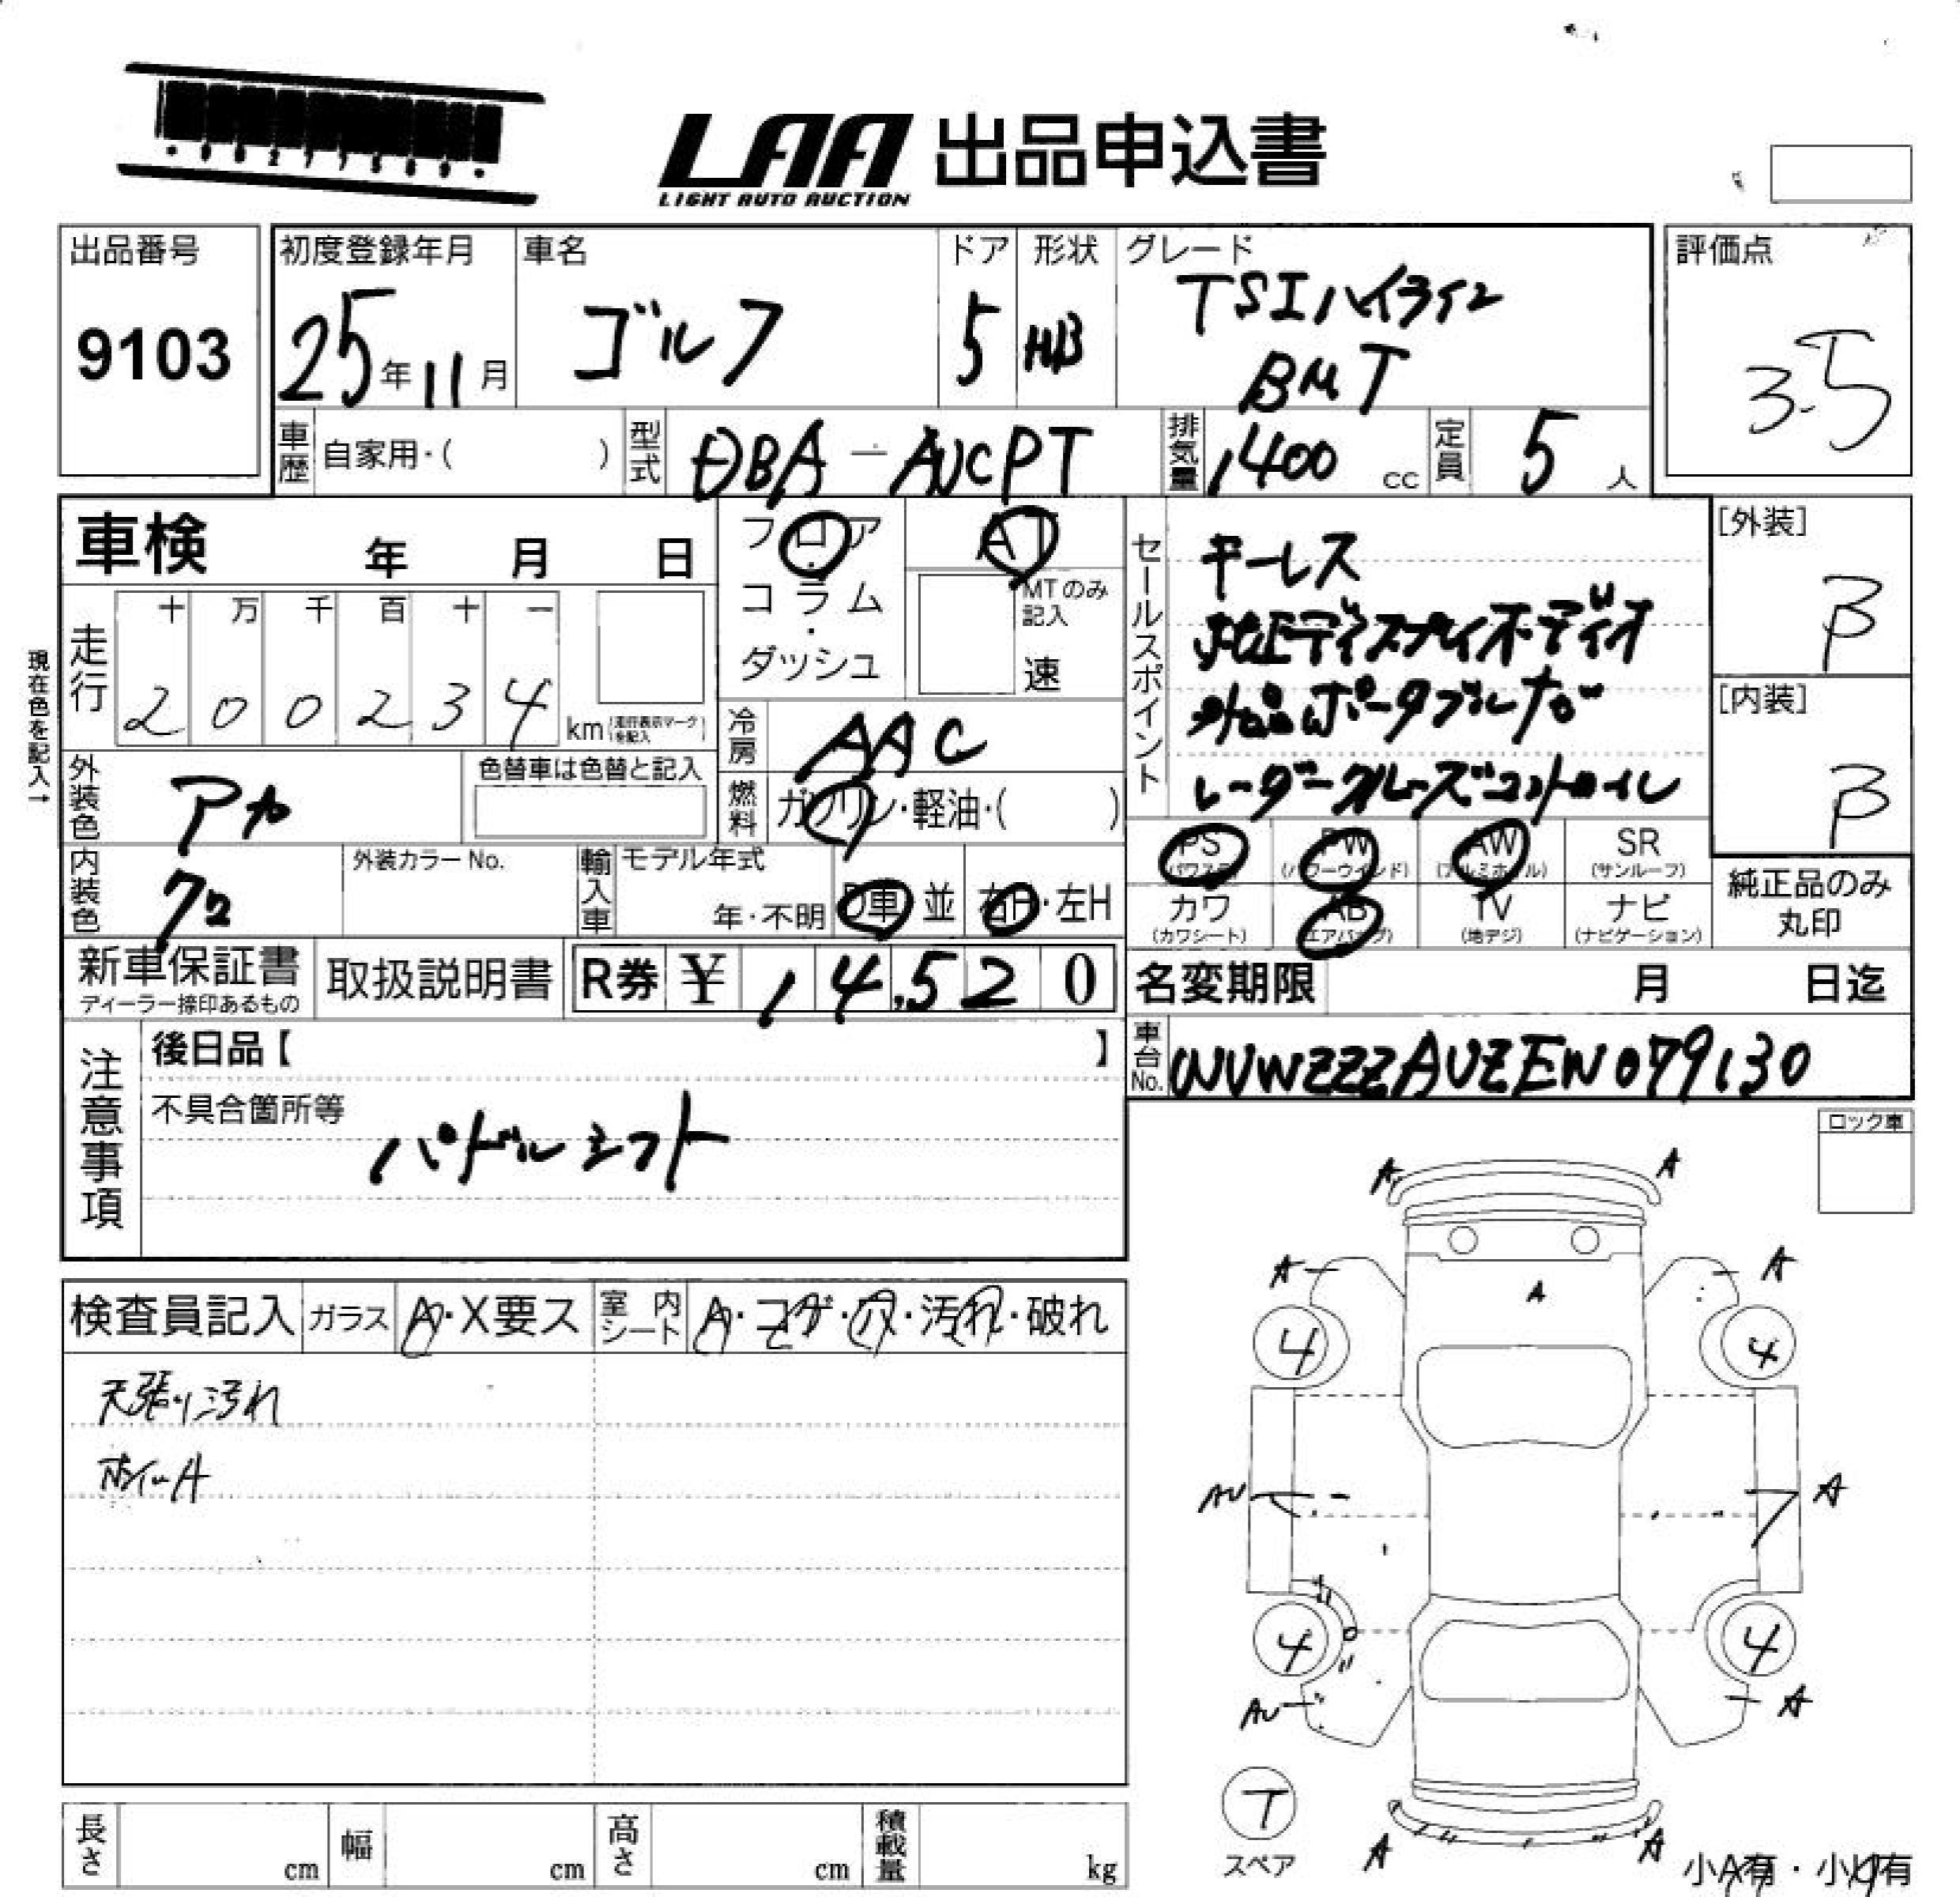 LAA 出品申込書
LIGHT AUTO AUCTION
出品番号
9103
初度登録年月
25年11月
車名
ゴルフ
ドア
5
形状
HB
グレード
TSIハイライン
BMT
評価点
3.5
車歴 自家用・( )
型式 DBA-AUCPT
排気量 1400 cc
定員 5 人
車検 年 月 日
フロア・コラム・ダッシュ
AT
MTのみ記入
速
現在色を記入→
走行
十 万 千 百 十 一
2 0 0 2 3 4 km (走行表示マークを記入)
冷房 AAC
燃料 ガソリン・軽油・( )
外装色 アカ
色替車は色替と記入
内装色 クロ
外装カラーNo.
輸入車
モデル年式
年・不明
D車 並
右H・左H
セールスポイント
キーレス
純正ディスプレイオーディオ
社外品ポータブルナビ
レーダークルーズコントロイル
[外装]
B
[内装]
B
PS (パワステ)
PW (パワーウインド)
AW (アルミホイル)
SR (サンルーフ)
カワ (カワシート)
AB (エアバッグ)
TV (地デジ)
ナビ (ナビゲーション)
純正品のみ
丸印
新車保証書
ディーラー捺印あるもの
取扱説明書
R券 ¥ 14,520
名変期限 月 日迄
車台No. WVWZZZAUZEW079130
注意事項
後日品【 】
不具合箇所等
パドルシフト
ロック車
検査員記入
ガラス A・X要ス
室内シート A・コゲ・穴・汚れ・破れ
天張り汚れ
ホイールA
A A
A A
A
4 4
AU A
4 4
AU A
T
スペア
A A
小A有・小U有
長さ cm
幅 cm
高さ cm
積載量 kg